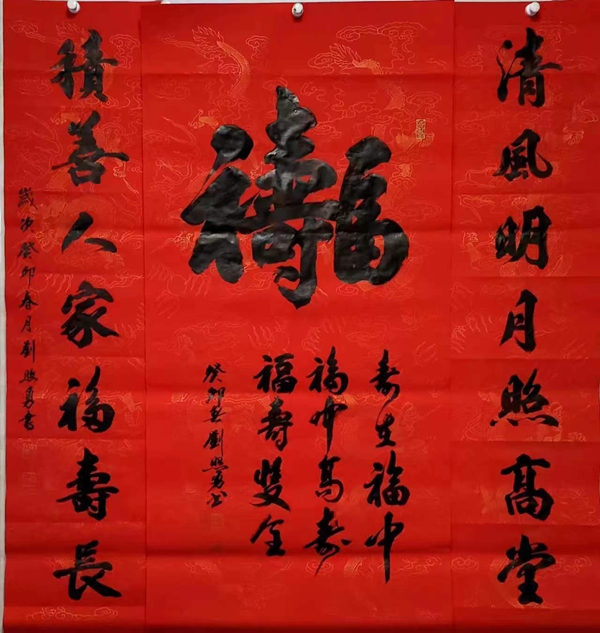 清風明月照髙堂
福壽
寿生福中
福中髙寿
福壽雙全
癸卯春劉照勇书
積善人家福壽長
歲次癸卯春月劉照勇書